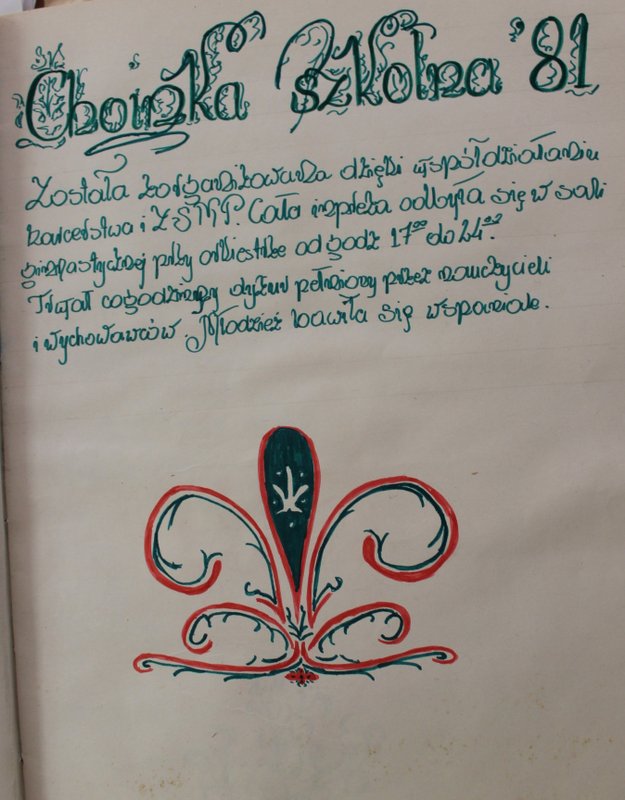 Choinka Szkolna '81
Została zorganizowana dzięki współdziałaniu
harcerstwa i ZSMP. Cała impreza odbyła się w sali
gimnastycznej przy orkiestrze od godz 17⁰⁰ do 24⁰⁰.
Trwał cogodzinny dyżur pełniony przez nauczycieli
i wychowawców. Młodzież bawiła się wspaniale.